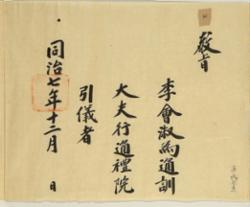 敎旨
李會淑為通訓
大夫行通禮院
引儀者
同治七年十二月 日